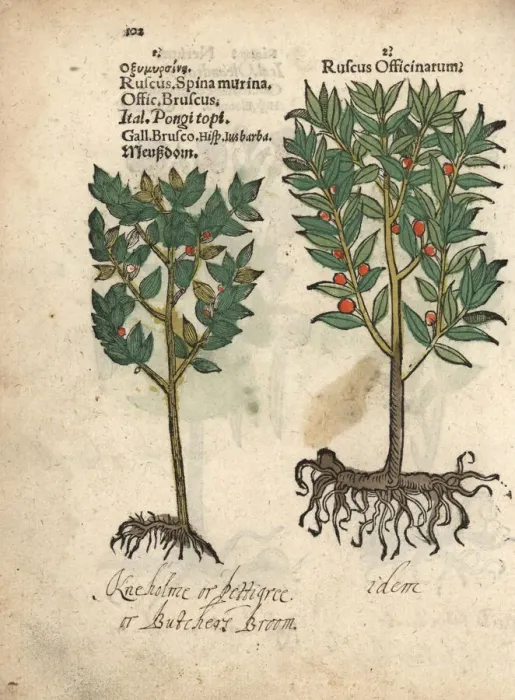 102
1?
Οξυμυρσίνη.
Ruscus. Spina murina.
Offic, Bruscus.
Ital. Pongi topi.
Gall. Brusco. Hisp. Jusbarba.
Meußdorn.
2?
Ruscus Officinarum?
Kneholme or pettigree
or Butchers Broom.
idem